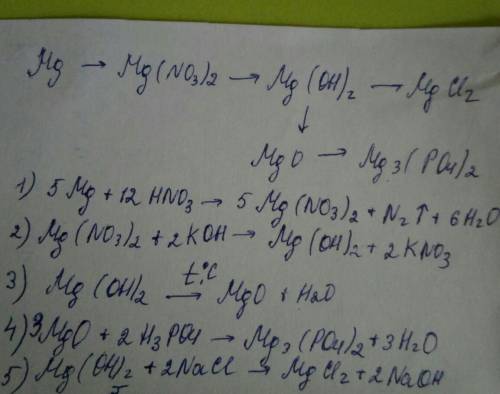 Mg → Mg(NO3)2 → Mg(OH)2 → MgCl2
↓
MgO → Mg3(PO4)2
1) 5Mg + 12HNO3 → 5Mg(NO3)2 + N2↑ + 6H2O
2) Mg(NO3)2 + 2KOH → Mg(OH)2 + 2KNO3
3) Mg(OH)2 t°C→ MgO + H2O
4) 3MgO + 2H3PO4 → Mg3(PO4)2 + 3H2O
5) Mg(OH)2 + 2NaCl → MgCl2 + 2NaOH